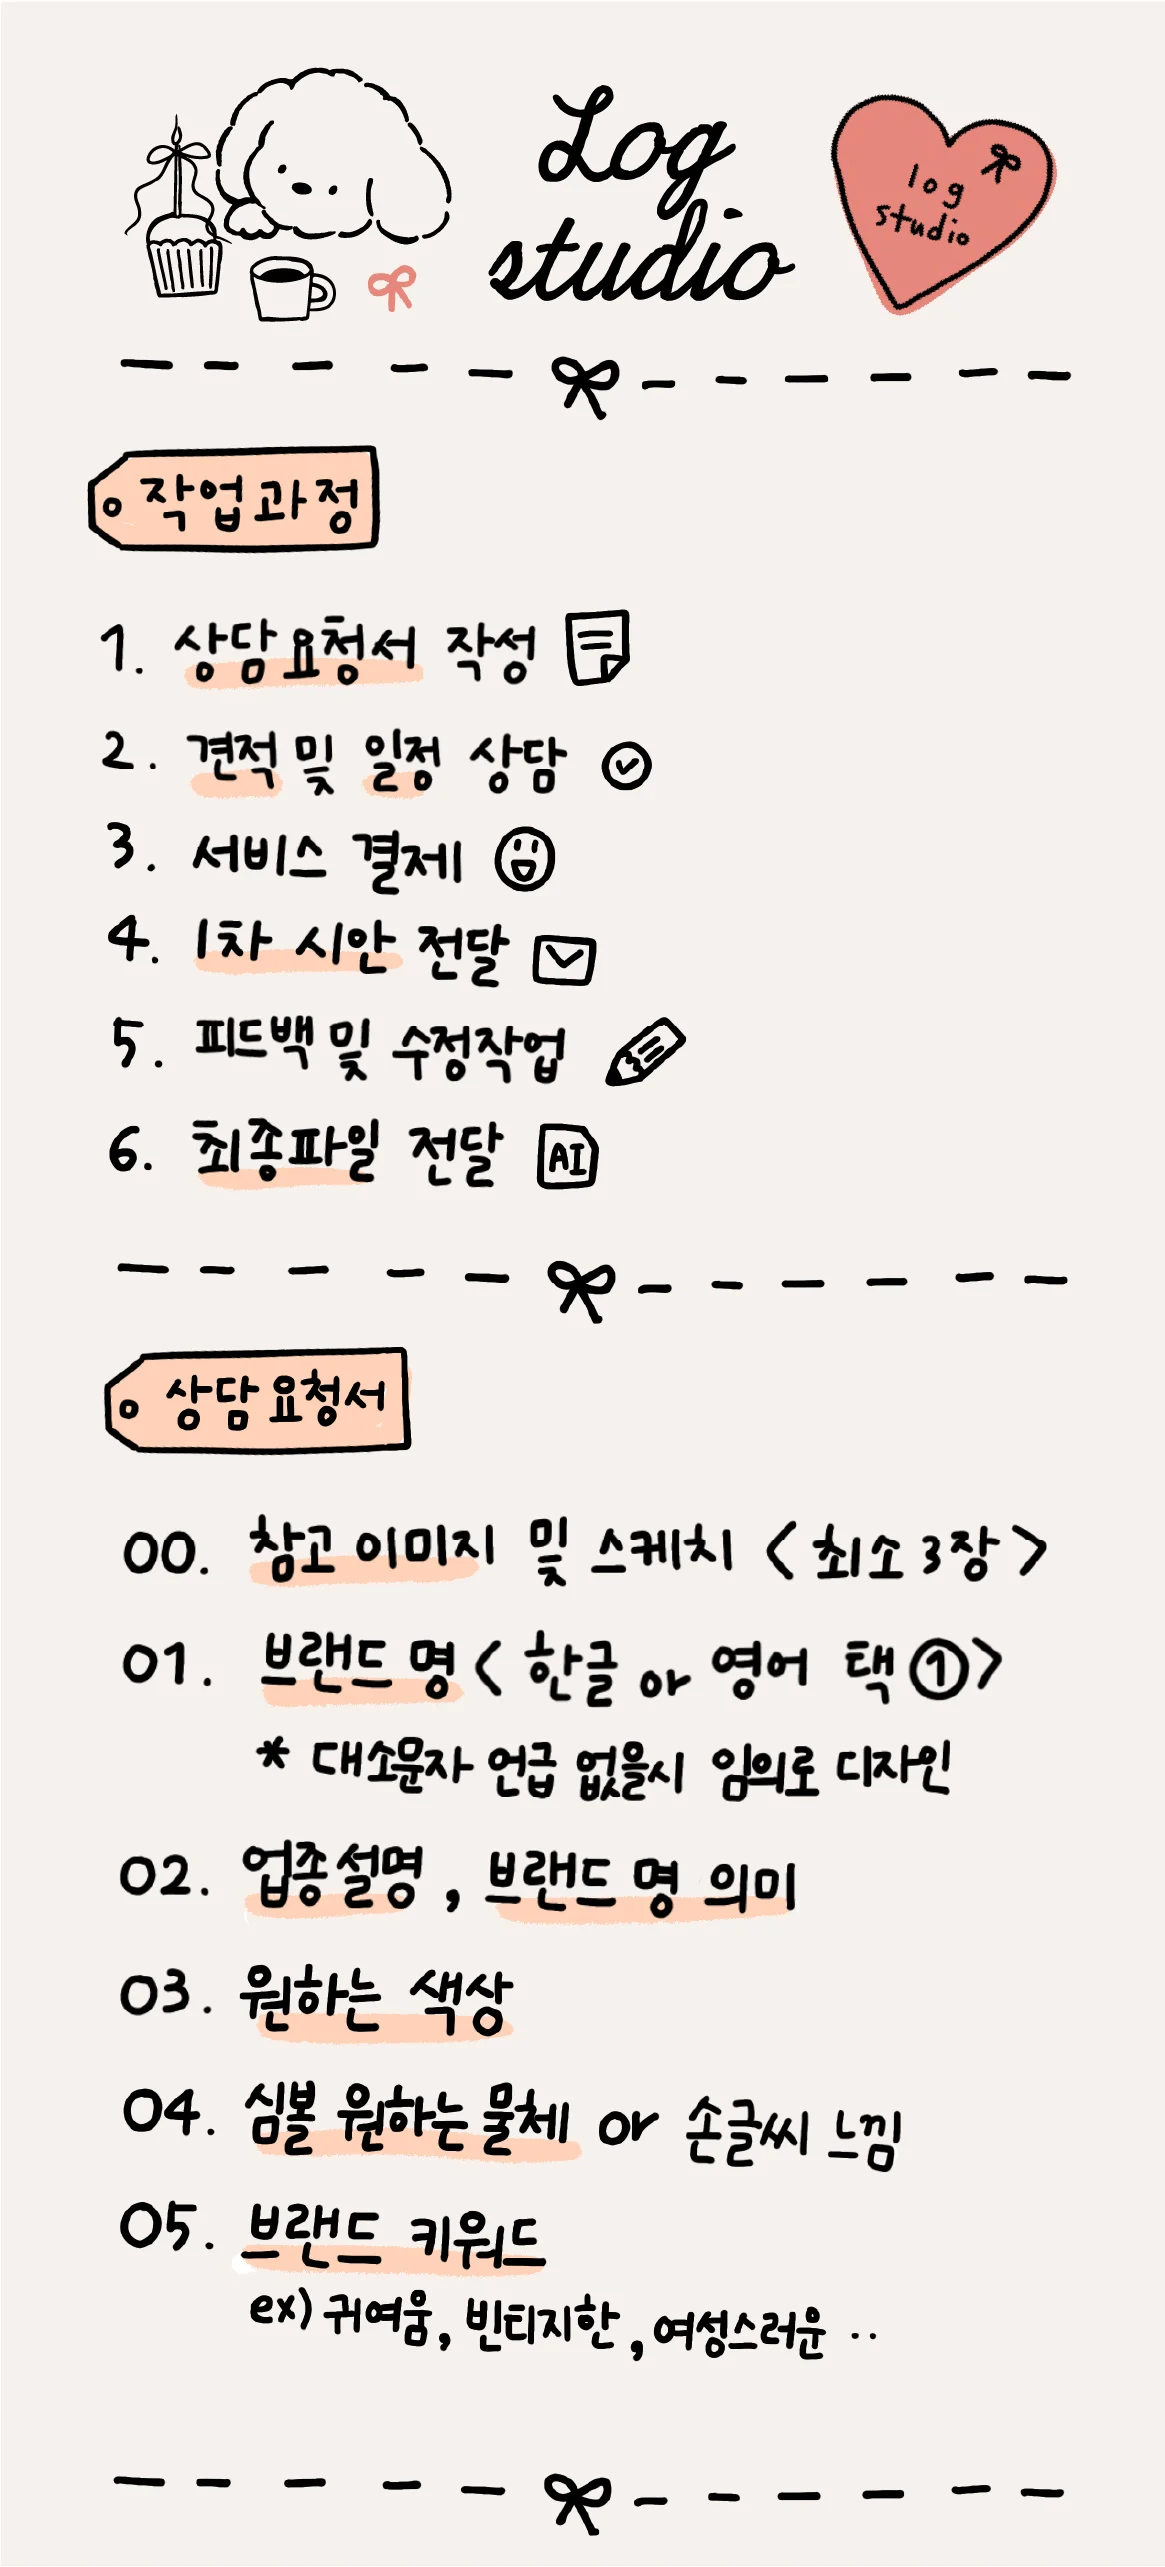 Log
studio
log
studio
작업과정
1. 상담요청서 작성
2. 견적 및 일정 상담
3. 서비스 결제
4. 1차 시안 전달
5. 피드백 및 수정작업
6. 최종파일 전달
AI
상담요청서
00. 참고 이미지 및 스케치 <최소 3장>
01. 브랜드 명 <한글 or 영어 택①>
* 대소문자 언급 없을시 임의로 디자인
02. 업종설명, 브랜드 명 의미
03. 원하는 색상
04. 심볼 원하는 물체 or 손글씨 느낌
05. 브랜드 키워드
ex) 귀여움, 빈티지한, 여성스러운 ..